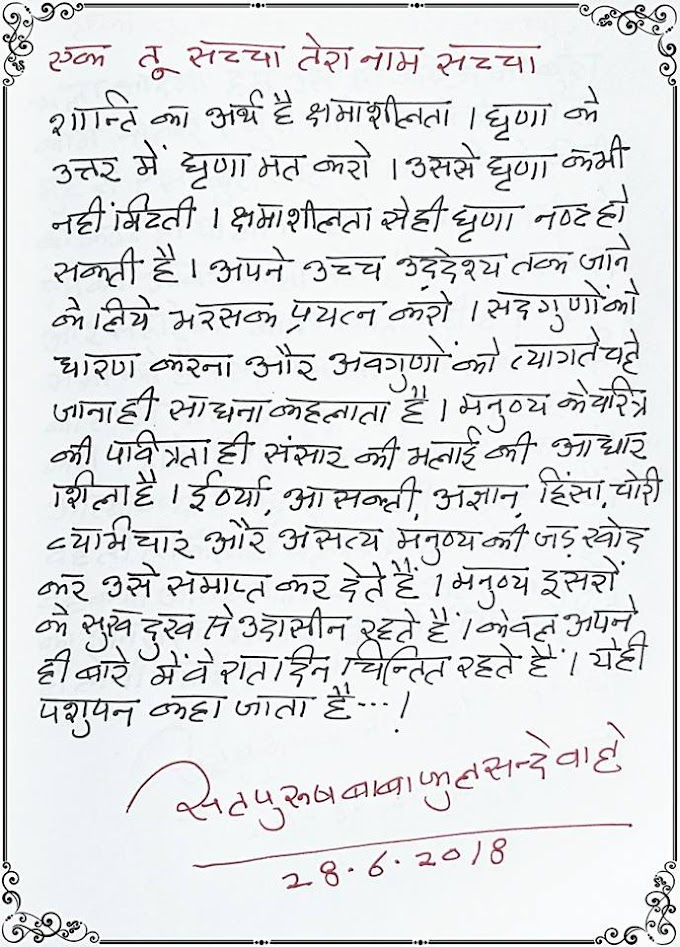 एक तू सच्चा तेरा नाम सच्चा
शान्ति का अर्थ है क्षमाशीलता । घृणा के
उत्तर में घृणा मत करो । उससे घृणा कभी
नहीं मिटती । क्षमाशीलता से ही घृणा नष्ट हो
सकती है । अपने उच्च उद्देश्य तक जाने
के लिये भरसक प्रयत्न करो । सदगुणों को
धारण करना और अवगुणों को त्यागते चले
जाना ही साधना कहलाता है । मनुष्य के चरित्र
की पवित्रता ही संसार की भलाई की आधार
शिला है । ईर्ष्या, आसक्ती, अज्ञान, हिंसा, चोरी
व्याभिचार और असत्य मनुष्य की जड़ खोद
कर उसे समाप्त कर देते हैं । मनुष्य दूसरों
के सुख दुख से उदासीन रहते हैं । केवल अपने
ही बारे में वे रात दिन चिन्तित रहते हैं । ये ही
पशुपन कहा जाता है... ।
सतपुरूष बाबा फुलसन्दे वाले
28.6.2018